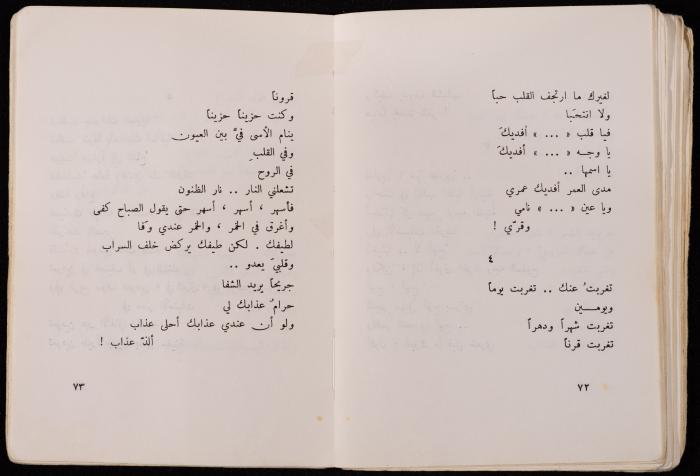 لغيرك ما ارتجف القلب حباً
ولا انتحَبا
فيا قلب « ... » أفديكَ
يا وجه « ... » أفديكَ
يا اسمها ..
مدى العمر أفديك عمري
ويا عين « ... » نامي
وقرّي !
٤
تغربتُ عنك .. تغربت يوماً
ويومــين
تغربت شهراً ودهراً
تغربت قرناً
٧٢
قروناً
وكنت حزيناً حزيناً
ينام الأسى فيَّ بين العيون
وفي القلبِ
في الروح
تشعلني النار .. نار الظنون
فأسهر ، أسهر ، أسهر حتى يقول الصباح كفى
وأغرق في الخمر ، والخمر عندي وفا
لطيفك . لكن طيفك يركض خلف السراب
وقلبيَ يعدو ..
جريحاً يريد الشفا
حرامٌ عذابك لي
ولو أن عندي عذابك أحلى عذاب
ألذّ عذاب !
٧٣